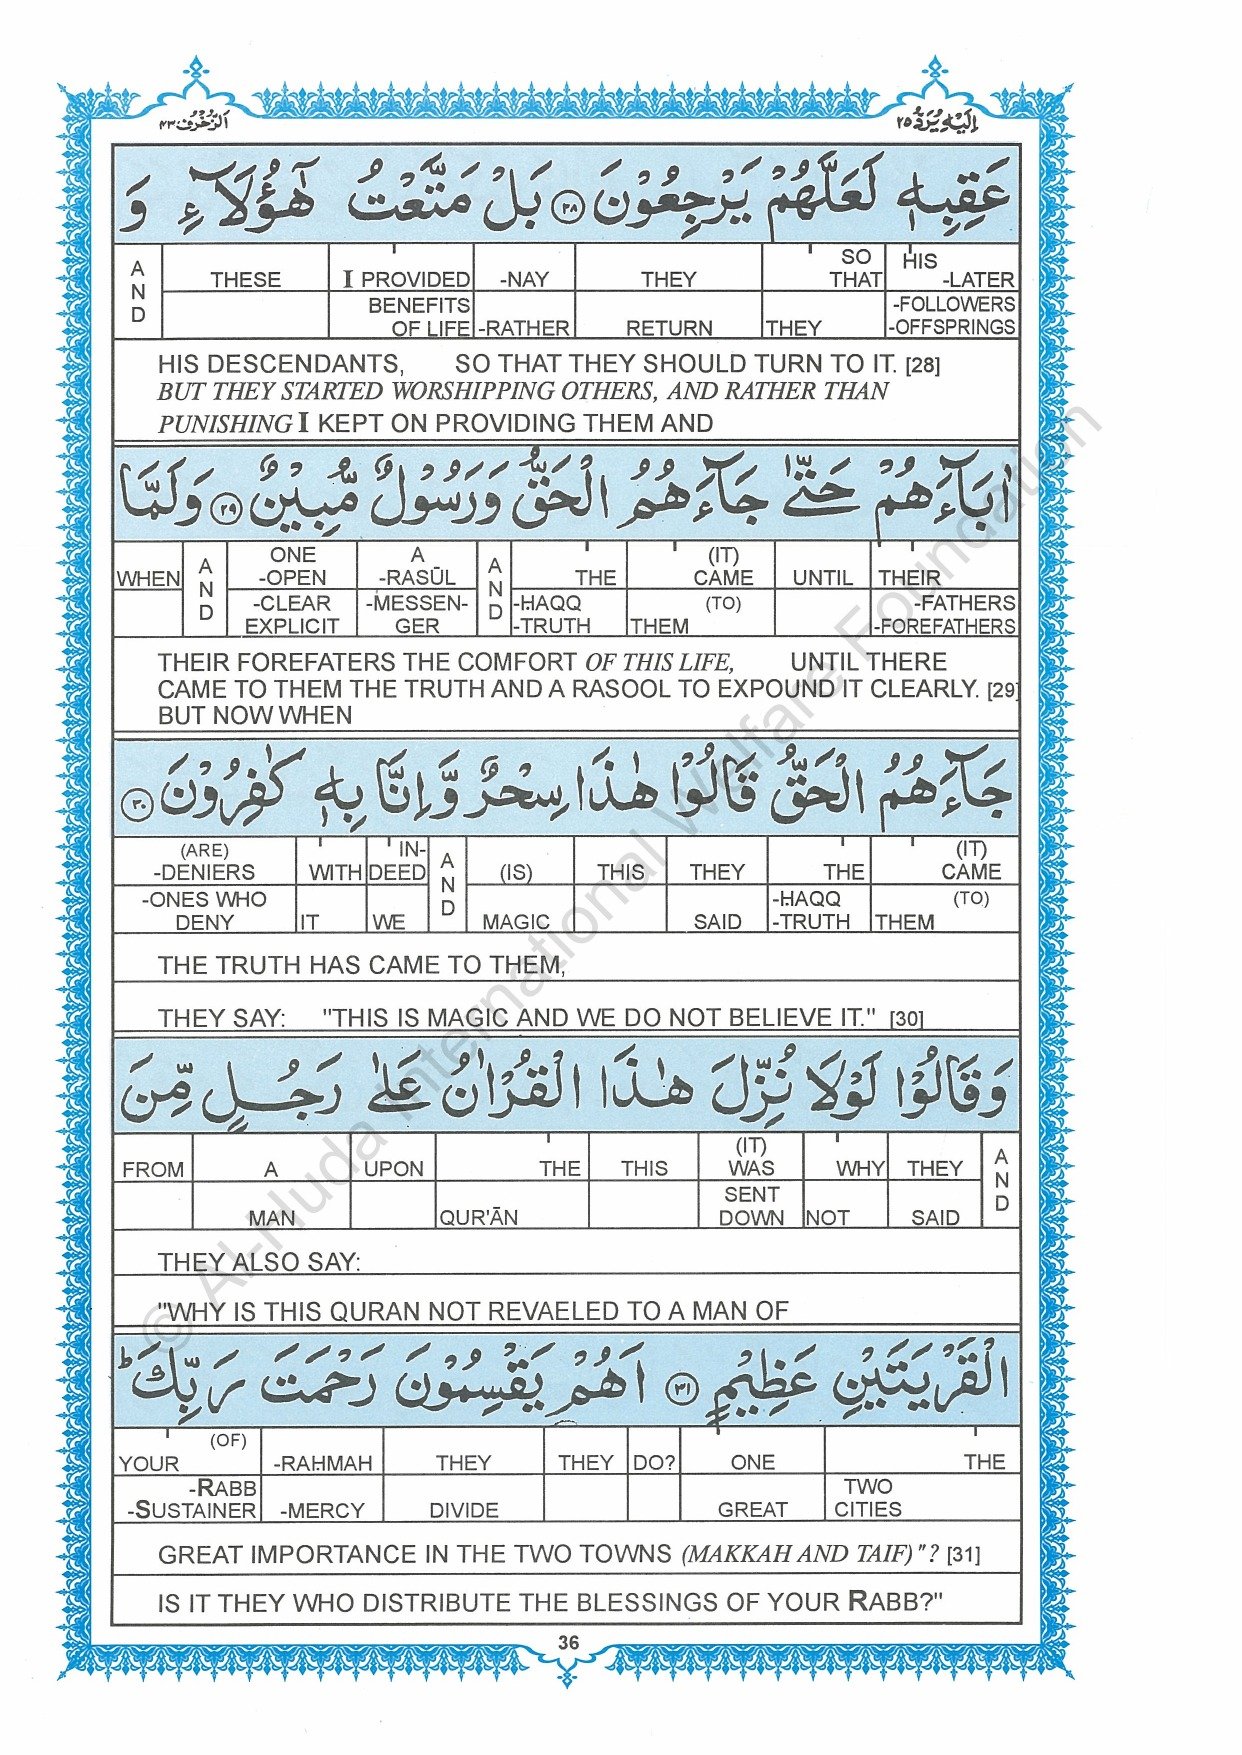 الزخرف ٤٣
اليه يرد ٢٥
عَقِبِهٖ لَعَلَّهُمْ يَرْجِعُوْنَ ﴿٢٨﴾ بَلْ مَتَّعْتُ هٰٓؤُلَآءِ وَ
AND THESE I PROVIDED -NAY THEY SO THAT HIS -LATER
BENEFITS OF LIFE -RATHER RETURN THEY -FOLLOWERS -OFFSPRINGS
HIS DESCENDANTS, SO THAT THEY SHOULD TURN TO IT. [28]
BUT THEY STARTED WORSHIPPING OTHERS, AND RATHER THAN
PUNISHING I KEPT ON PROVIDING THEM AND
اٰبَآءَهُمْ حَتّٰى جَآءَهُمُ الْحَقُّ وَرَسُوْلٌ مُّبِيْنٌ ﴿٢٩﴾ وَلَمَّا
WHEN AND ONE -OPEN A -RASŪL AND THE (IT) CAME UNTIL THEIR
-CLEAR EXPLICIT -MESSEN- GER -HAQQ -TRUTH (TO) THEM -FATHERS -FOREFATHERS
THEIR FOREFATERS THE COMFORT OF THIS LIFE, UNTIL THERE
CAME TO THEM THE TRUTH AND A RASOOL TO EXPOUND IT CLEARLY. [29]
BUT NOW WHEN
جَآءَهُمُ الْحَقُّ قَالُوْا هٰذَا سِحْرٌ وَّاِنَّا بِهٖ كٰفِرُوْنَ ﴿٣٠﴾
(ARE) -DENIERS WITH IN- DEED AND (IS) THIS THEY THE (IT) CAME
-ONES WHO DENY IT WE MAGIC SAID -HAQQ -TRUTH (TO) THEM
THE TRUTH HAS CAME TO THEM,
THEY SAY: "THIS IS MAGIC AND WE DO NOT BELIEVE IT." [30]
وَقَالُوْا لَوْلَا نُزِّلَ هٰذَا الْقُرْاٰنُ عَلٰى رَجُلٍ مِّنَ
FROM A UPON THE THIS (IT) WAS WHY THEY AND
MAN QUR'ĀN SENT DOWN NOT SAID
THEY ALSO SAY:
"WHY IS THIS QURAN NOT REVAELED TO A MAN OF
الْقَرْيَتَيْنِ عَظِيْمٍ ﴿٣١﴾ اَهُمْ يَقْسِمُوْنَ رَحْمَتَ رَبِّكَ ط
YOUR (OF) -RAHMAH THEY THEY DO? ONE THE
-RABB -SUSTAINER -MERCY DIVIDE GREAT TWO CITIES
GREAT IMPORTANCE IN THE TWO TOWNS (MAKKAH AND TAIF)"? [31]
IS IT THEY WHO DISTRIBUTE THE BLESSINGS OF YOUR RABB?"
36
© Al-Huda International Welfare Foundation